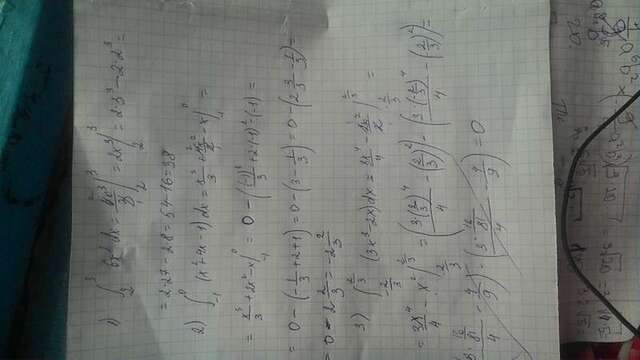 1) ∫₂³ 6x² dx = 6x³/3 |₂³ = 2x³ |₂³ = 2·3³ − 2·2³ =
= 2·27 − 2·8 = 54 − 16 = 38
2) ∫₋₁⁰ (x² + 4x − 1) dx = x³/3 + 4x²/2 − x |₋₁⁰ =
= x³/3 + 2x² − x |₋₁⁰ = 0 − ((−1)³/3 + 2·(−1)² − (−1) =
= 0 − (−1/3 + 2 + 1) = 0 − (3 − 1/3) = 0 − (2 3/3 − 1/3) =
= 0 − 2 2/3 = −2 2/3
3) ∫ from −2/3 to 2/3 (3x³ − 2x) dx = 3x⁴/4 − 2x²/2 | from −2/3 to 2/3 =
= 3x⁴/4 − x² | from 2/3 to 2/3 = (3·(2/3)⁴/4 − (2/3)²) − (3·(−2/3)⁴/4 − (2/3)²) =
3·16/81/4 − 4/9) − (3·16/81/4 − 4/9) = 0